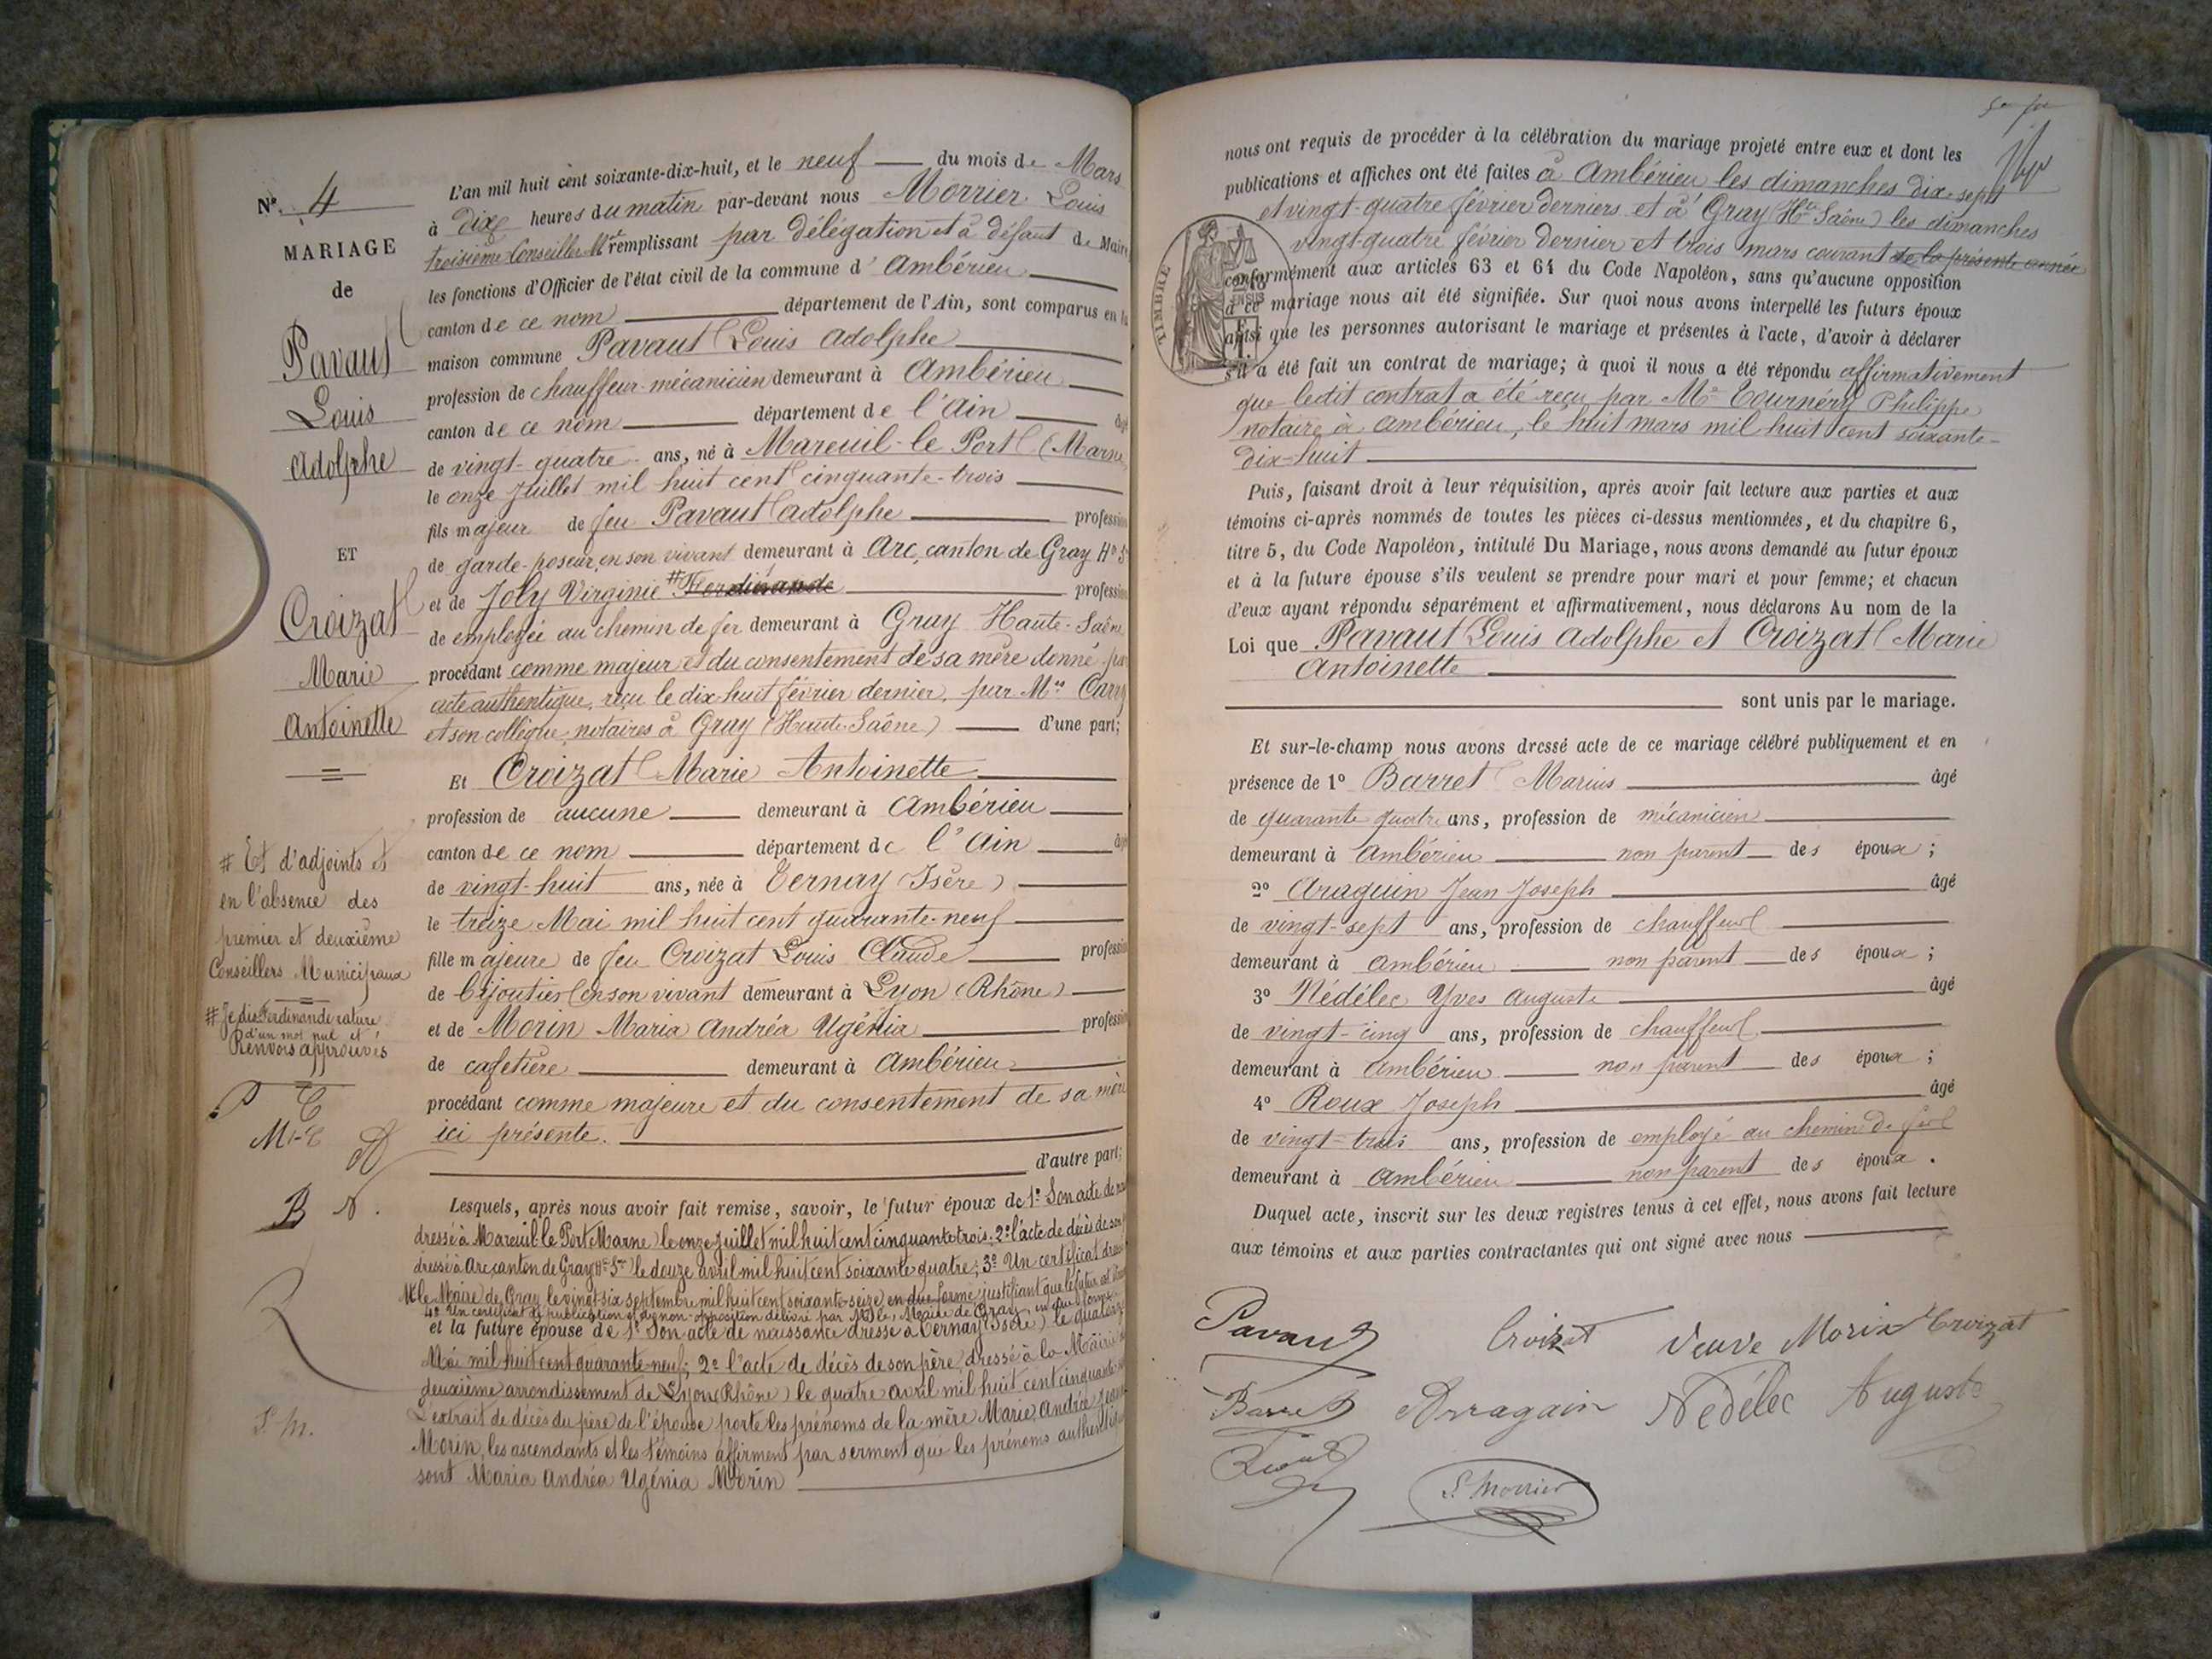 Nº 4
MARIAGE
de
Pavaut
Louis
Adolphe
ET
Croizat
Marie
Antoinette
# Et d'adjoints et
en l'absence des
premier et deuxième
Conseillers Municipaux
# Je dis Ferdinande rature
d'un mot nul et
Renvois approuvés
P C
M-C
B N.
L. M.
L'an mil huit cent soixante-dix-huit, et le neuf du mois de Mars
à dix heures du matin par-devant nous Morrier Louis
troisième Conseiller Mal remplissant par délégation et à défaut de Maire
les fonctions d'Officier de l'état civil de la commune d' Ambérieu
canton de ce nom département de l'Ain, sont comparus en la
maison commune Pavaut Louis Adolphe
profession de chauffeur-mécanicien demeurant à Ambérieu
canton de ce nom département de l'Ain âgé
de vingt-quatre ans, né à Mareuil-le Port (Marne
le onze Juillet mil huit cent cinquante-trois
fils majeur de feu Pavaut Adolphe profession
de garde-poseur, en son vivant demeurant à Arc, canton de Gray Hte Sne
et de Joly Virginie # Ferdinande profession
de employée au chemin de fer demeurant à Gray Haute-Saône
procédant comme majeur et du consentement de sa mère donné par
acte authentique, reçu le dix huit février dernier, par Mes Carry
et son collègue, notaires à Gray (Haute-Saône) d'une part;
Et Croizat Marie Antoinette
profession de aucune demeurant à Ambérieu
canton de ce nom département de l'Ain âgée
de vingt-huit ans, née à Ternay (Isère)
le treize Mai mil huit cent quarante-neuf
fille majeure de feu Croizat Louis Claude profession
de bijoutier en son vivant demeurant à Lyon (Rhône)
et de Morin Maria Andréa Ugénia profession
de cafetière demeurant à Ambérieu
procédant comme majeure et du consentement de sa mère
ici présente.
d'autre part;
Lesquels, après nous avoir fait remise, savoir, le futur époux de 1º Son acte de
dressé à Mareuil le Port (Marne) le onze juillet mil huit cent cinquante trois. 2º l'acte de décès de son
dressé à Arc canton de Gray Hte Sne le douze avril mil huit cent soixante quatre; 3º Un certificat
Mr le Maire de Gray le vingt-six septembre mil huit cent soixante-seize, en due forme, justifiant que le futur est
4º Un certificat de publication et de non-opposition délivré par Mr le Maire de Gray, en due forme
et la future épouse de 1º Son acte de naissance dressé à Ternay (Isère) le quatorze
Mai mil huit cent quarante-neuf; 2º l'acte de décès de son père, dressé à la Mairie du
deuxième arrondissement de Lyon (Rhône) le quatre avril mil huit cent cinquante
L'extrait de décès du père de l'épouse porte les prénoms de la mère Marie, Andrée
Morin, les ascendants et les témoins affirment par serment que les prénoms authentiques
sont Maria Andréa Ugénia Morin
nous ont requis de procéder à la célébration du mariage projeté entre eux et dont les
publications et affiches ont été faites à Ambérieu les dimanches dix-sept
et vingt-quatre février derniers et à Gray (Hte Saône) les dimanches
vingt-quatre février dernier et trois mars courant de la présente année
TIMBRE
conformément aux articles 63 et 64 du Code Napoléon, sans qu'aucune opposition
à ce mariage nous ait été signifiée. Sur quoi nous avons interpellé les futurs époux
ainsi que les personnes autorisant le mariage et présentes à l'acte, d'avoir à déclarer
s'il a été fait un contrat de mariage; à quoi il nous a été répondu affirmativement
que ledit contrat a été reçu par Me Tournéry Philippe
notaire à Ambérieu, le huit mars mil huit cent soixante-
dix-huit
Puis, faisant droit à leur réquisition, après avoir fait lecture aux parties et aux
témoins ci-après nommés de toutes les pièces ci-dessus mentionnées, et du chapitre 6,
titre 5, du Code Napoléon, intitulé Du Mariage, nous avons demandé au futur époux
et à la future épouse s'ils veulent se prendre pour mari et pour femme; et chacun
d'eux ayant répondu séparément et affirmativement, nous déclarons Au nom de la
Loi que Pavaut Louis Adolphe et Croizat Marie
Antoinette
sont unis par le mariage.
Et sur-le-champ nous avons dressé acte de ce mariage célébré publiquement et en
présence de 1º Barret Marius âgé
de quarante quatre ans, profession de mécanicien
demeurant à Ambérieu non parent des époux;
2º Araguin Jean Joseph âgé
de vingt-sept ans, profession de chauffeur
demeurant à Ambérieu non parent des époux;
3º Nédélec Yves Auguste âgé
de vingt-cinq ans, profession de chauffeur
demeurant à Ambérieu non parent des époux;
4º Roux Joseph âgé
de vingt-trois ans, profession de employé au chemin de fer
demeurant à Ambérieu non parent des époux.
Duquel acte, inscrit sur les deux registres tenus à cet effet, nous avons fait lecture
aux témoins et aux parties contractantes qui ont signé avec nous
Pavaut Croizat Veuve Morin Croizat
Barret Arragain Nédélec Auguste
Roux
L. Morrier